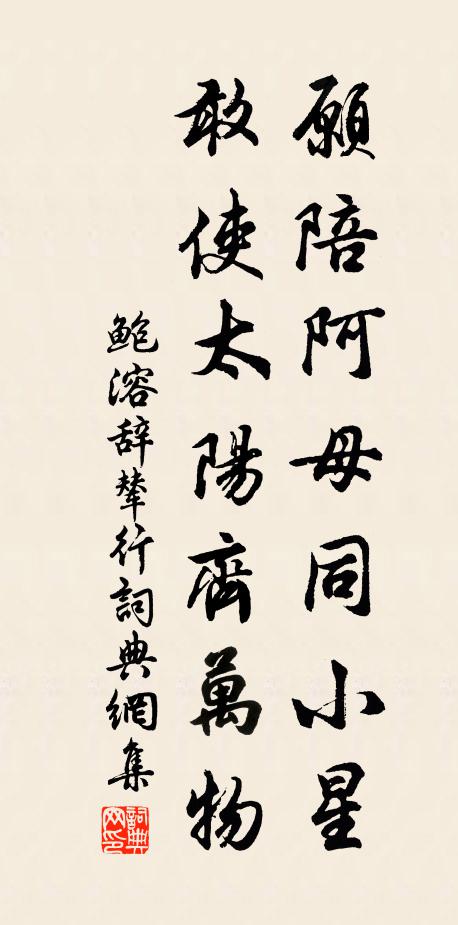 願陪阿母同小星
敢使太陽齊萬物
鮑溶辞輦行詞典網集
詞典
网印